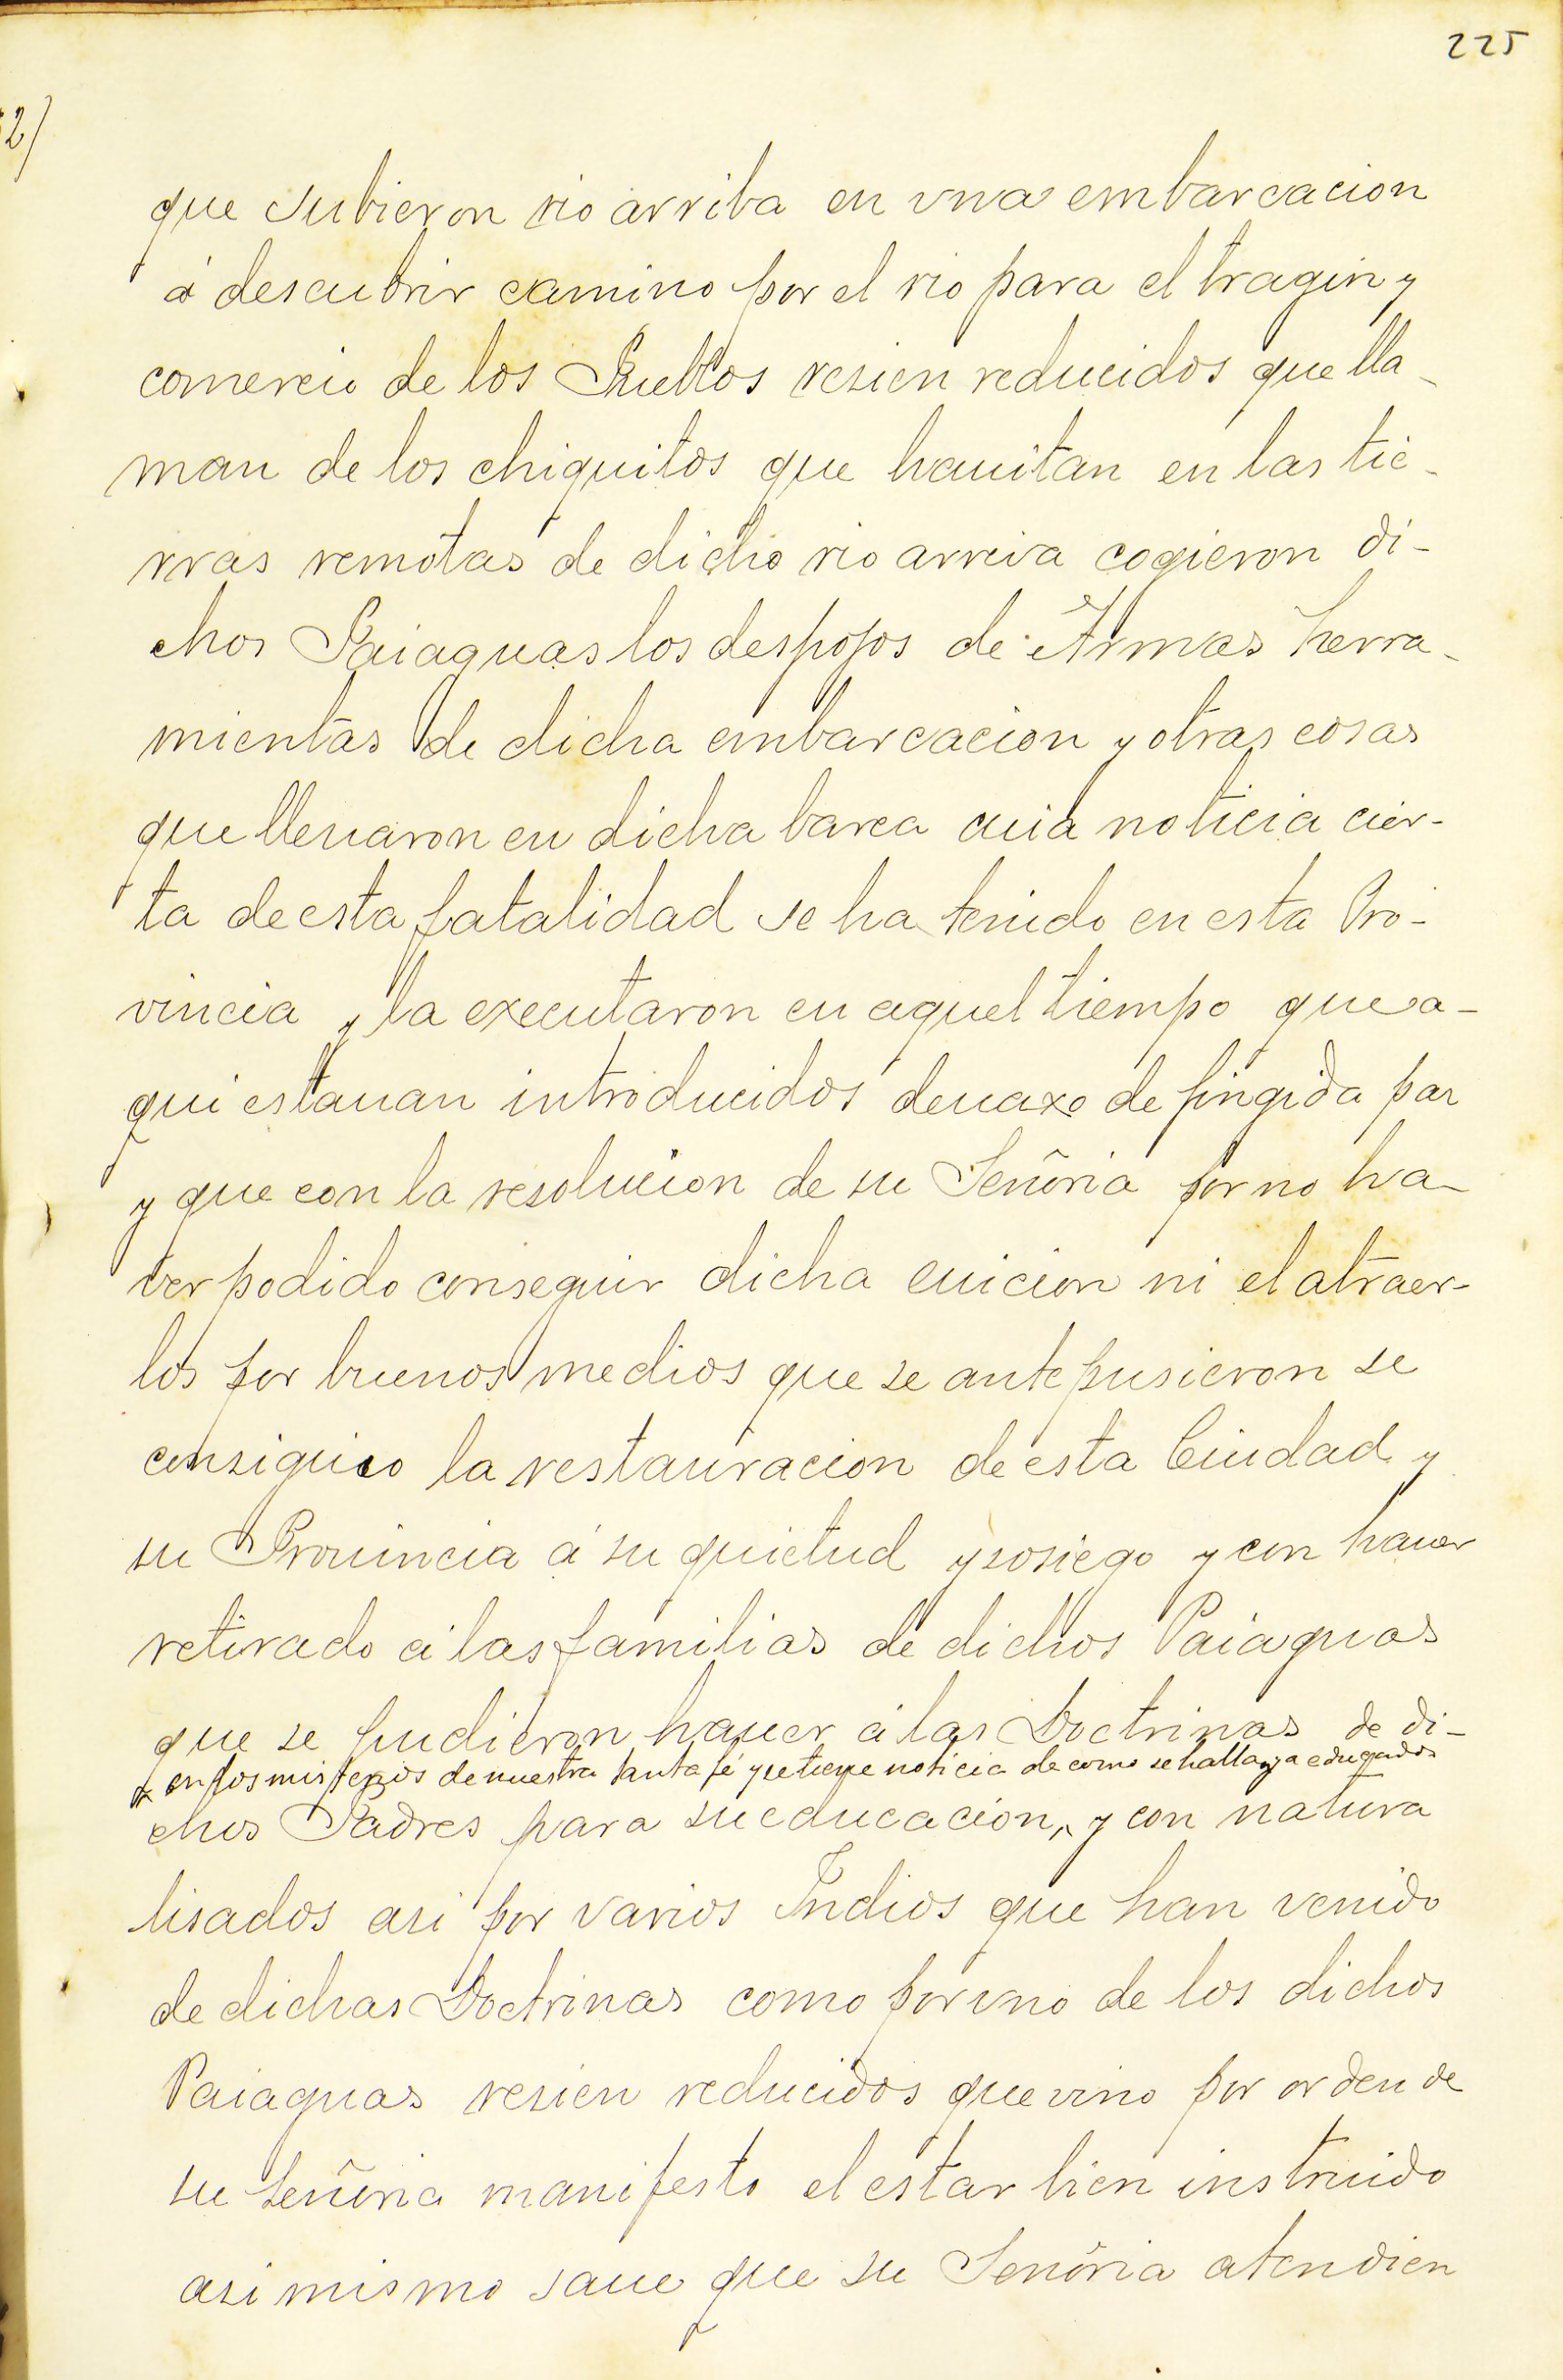 225
2)
que subieron rio arriba en vna embarcacion
á descubrir camino por el rio para el tragin y
comercio de los Pueblos resien reducidos que lla-
man de los chiquitos que hauitan en las tie-
rras remotas de dicho rio arriva cogieron di-
chos Paiaguas los despojos de Armas herra-
mientas de dicha embarcacion y otras cosas
que lleuaron en dicha barca cuia noticia cier-
ta de esta fatalidad se ha tenido en esta Pro-
vincia y la executaron en aquel tiempo que a-
qui estauan introducidos deuaxo de fingida pas
y que con la resolucion de su Señoria por no ha-
ver podido conseguir dicha euicion ni el atraer-
los por buenos medios que se antepusieron se
consiguio la restauracion de esta Ciudad y
su Prouincia á su quietud y sosiego y con hauer
retirado á las familias de dichos Paiaguas
que se pudieron hauer á las Doctrinas de di-
en los misterios de nuestra santa fé y se tiene noticia de como se hallan ya educados
chos Padres para su educacion, y con natura
lisados asi por varios Indios que han venido
de dichas Doctrinas como por vno de los dichos
Paiaguas resien reducidos que vino por orden de
su Señoria manifesto el estar bien instruido
asi mismo saue que su Señoria atendien